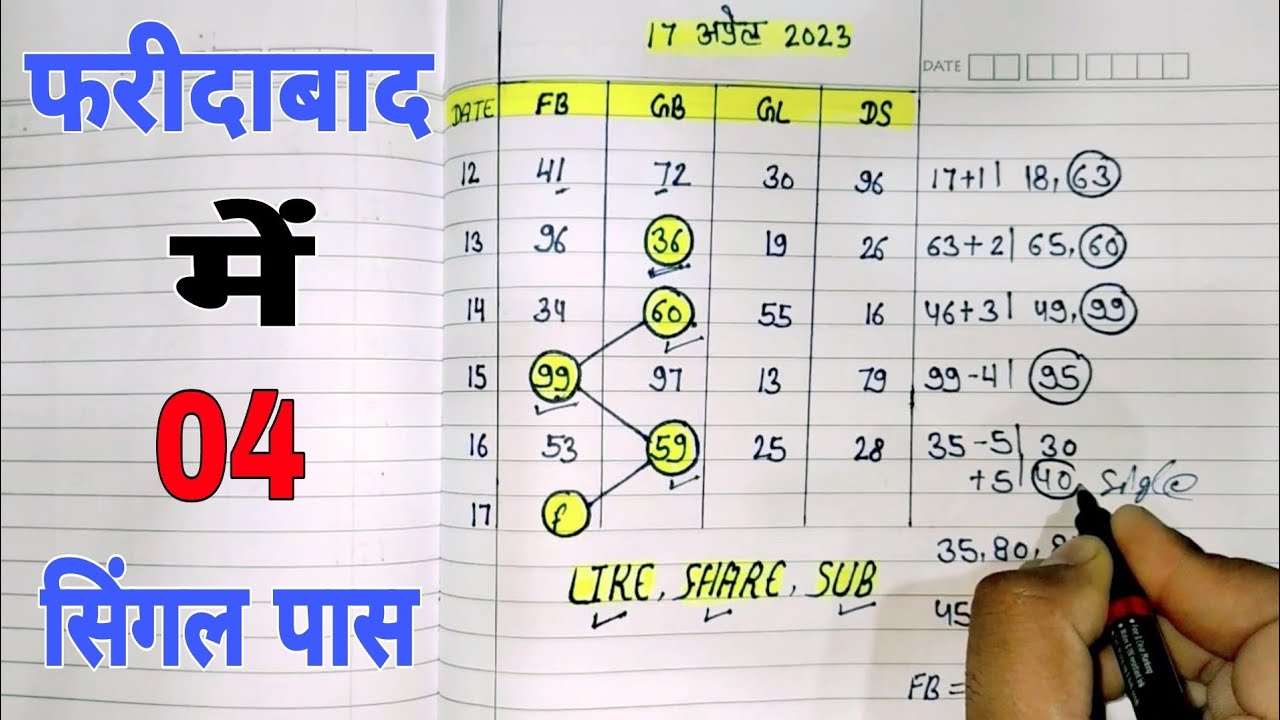 फरीदाबाद
में
04
सिंगल पास
17 अप्रेल 2023
DATE
DATE FB GB GL DS
12 41 72 30 96 17+1| 18, 63
13 96 36 19 26 63+2| 65, 60
14 34 60 55 16 46+3| 49, 99
15 99 97 13 79 99-4| 95
16 53 59 25 28 35-5| 30
+5| 40
17 f
35, 80,
LIKE, SHARE, SUB
45
FB =